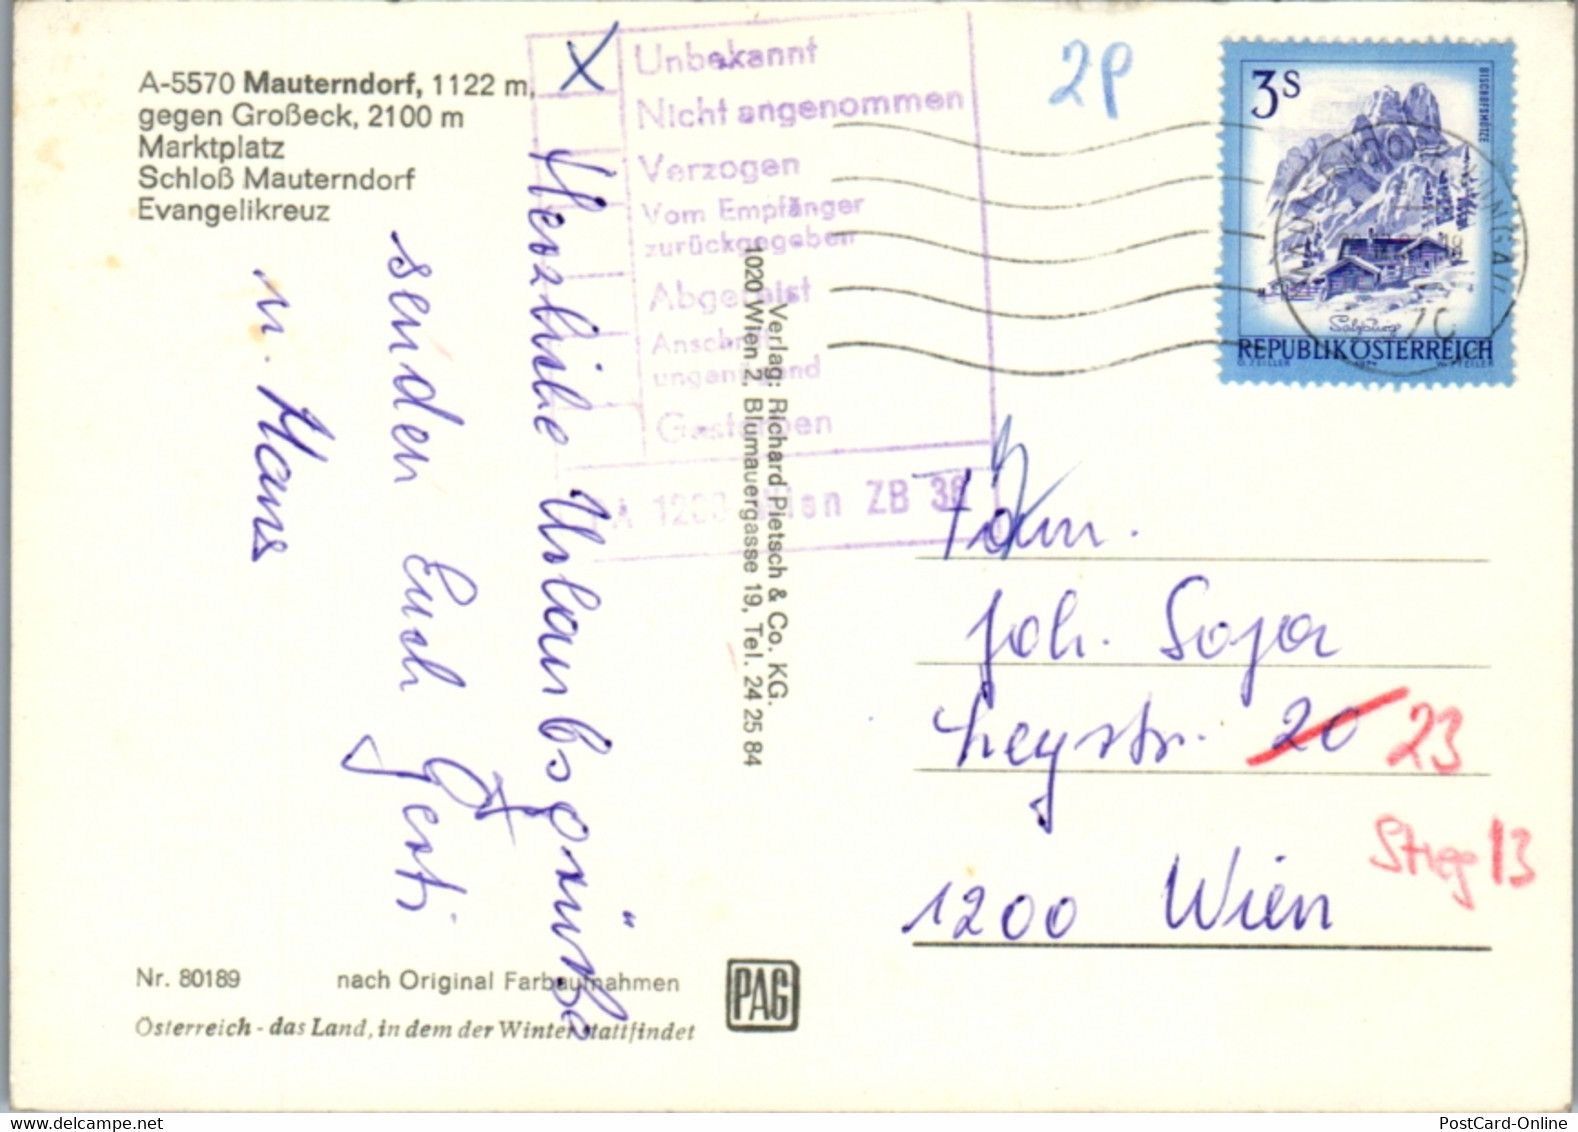 A-5570 Mauterndorf, 1122 m,
gegen Großeck, 2100 m
Marktplatz
Schloß Mauterndorf
Evangelikreuz
Herzliche Urlaubsgrüße
senden Euch Gerti
u. Hans
X
Unbekannt
Nicht angenommen
Verzogen
Vom Empfänger
zurückgegeben
Abgereist
Anschrift
ungenügend
Gestorben
Wien ZB
Verlag: Richard Pietsch & Co. KG.
1020 Wien 2, Blumauergasse 19, Tel. 24 25 84
2P
3S
BISCHOFSMÜTZE
Salzburg
REPUBLIK ÖSTERREICH
Fam.
Joh. Soja
Leystr. 20 23
Stieg 13
1200 Wien
Nr. 80189 nach Original Farbaufnahmen
Österreich - das Land, in dem der Winter stattfindet
PAG
PostCard-Online